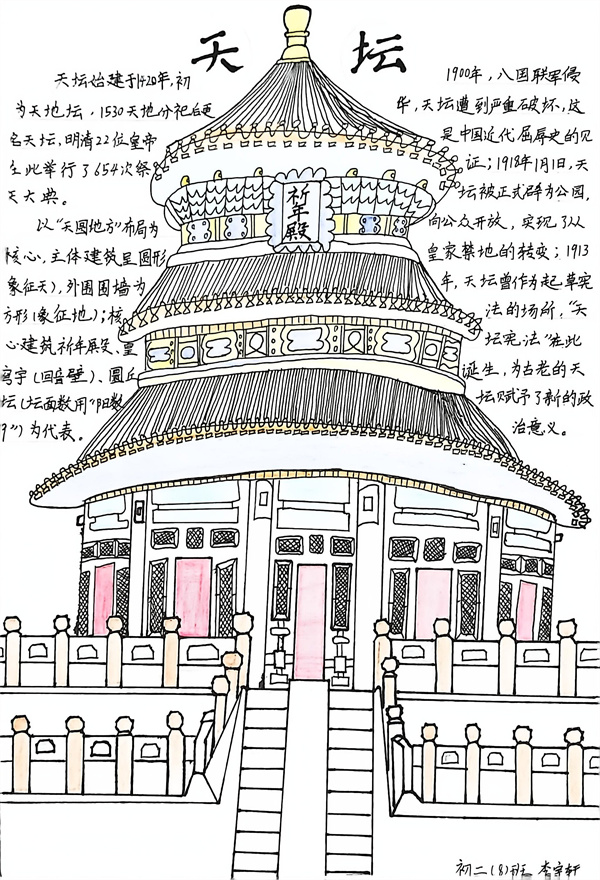 天坛
天坛始建于1420年,初
为天地坛,1530天地分祀后更
名天坛,明清22位皇帝
在此举行了654次祭
天大典。
以“天圆地方”布局为
核心,主体建筑呈圆形
(象征天),外围围墙为
方形(象征地);核
心建筑祈年殿、皇
穹宇(回音壁)、圜丘
坛(坛面数用“阳数
9”)为代表。
祈年殿
1900年,八国联军侵
华,天坛遭到严重破坏,这
是中国近代屈辱史的见
证;1918年1月1日,天
坛被正式辟为公园,
向公众开放,实现了从
皇家禁地的转变;1913
年,天坛曾作为起草宪
法的场所,“天
坛宪法”在此
诞生,为古老的天
坛赋予了新的政
治意义。
初二(8)班 李宇轩